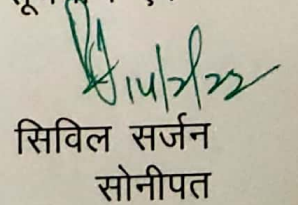 14/2/22
सिविल सर्जन
सोनीपत